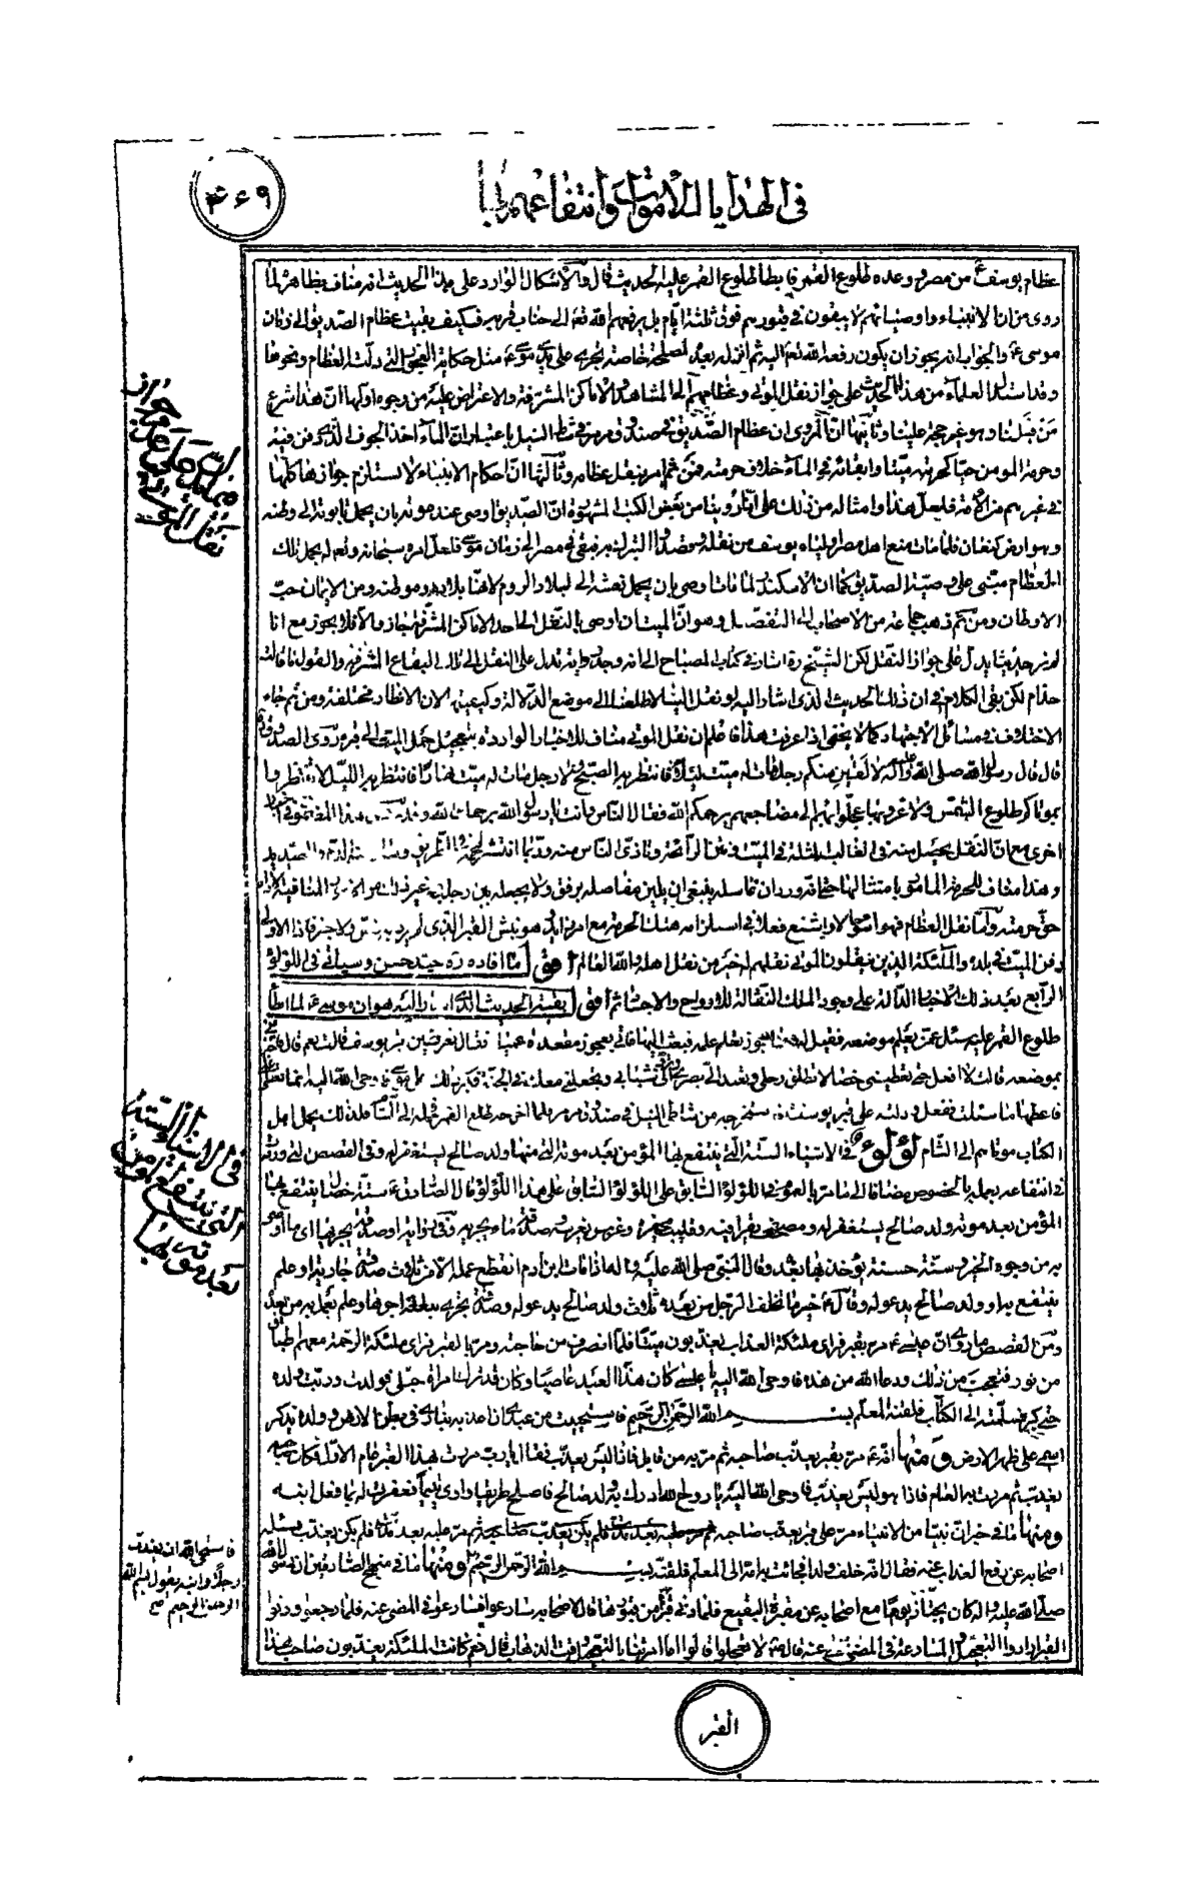 في الهدايا للأموات وانتفاعهم بها
۴۶۹
عظام يوسف ع من مصر ووعده طلوع القمر فابطأ طلوع القمر عليه الحديث قال والاشكال الوارد على هذا الحديث انه مناف بظاهره لما
روى من ان الانبياء واوصيائهم لا يبقون في قبورهم فوق ثلثة ايام بل يرفعهم الله تعم الى جناب قربه فكيف بقيت عظام الصديق الى زمان
موسى ع والجواب انه يجوز ان يكون رفعه الله تعم اليه ثم انزله بعد لمصلحة خاصة تجري على يدي موسى ع مثل حكاية العجوز التي دلته العظام ونحوها
وقد استدل العلماء من هذا الحديث على جواز نقل الموتى وعظامهم الى المشاهد والاماكن المشرفة والاعتراض عليه من وجوه اولها ان هذا شرع
من قبلنا وهو غير حجة علينا وثانيها ان المروى ان عظام الصديق في صندوق مرمر في شط النيل باعتبار ان الماء اخذ الجرف الذي دفن فيه
وحرمة المومن حيا كحرمته ميتا وابقائه في الماء خلاف حرمته فمن ثم امر بنقل عظامه وثالثها ان احكام الانبياء لا تستلزم جوازها كلها
في غيرهم من الامة فلعل هذا وامثاله من ذلك على انا روينا من بعض الكتب المشهورة ان الصديق اوصى عند موته بان يحمل تابوته الى وطنه
وهو ارض كنعان فلما مات منع اهل مصر اولياء يوسف من نقله وقصدوا التبرك به فبقى في مصر الى زمان موسى فلعل امره سبحانه وتعم له بحمل تلك
العظام مبنى على وصية الصديق كما ان الاسكندر لما مات اوصى بان يحمل نعشه الى بلاد الروم لانها بلاده وموطنه ومن الايمان حب
الاوطان ومن ثم ذهب جماعة من الاصحاب الى التفصيل وهو ان الميت ان اوصى بالنقل الى احد الاماكن المشرفة جاز والا فلا يجوز مع انا
لم نر حديثا يدل على جواز النقل لكن الشيخ ره اشار في كتاب المصباح الى انه وجد رواية تدل على النقل الى تلك البقاع الشرفية والقول ما قالت
حذام لكن بقى الكلام في ان ذلك الحديث الذي اشار اليه لو نقل الينا لاطلعنا الى موضع الدلالة وكيفيتها لان الانظار مختلفة ومن ثم جاء
الاختلاف في مسائل الاجتهاد كما لا يخفى اذا عرفت هذا فاعلم ان نقل الموتى مناف للاخبار الواردة بتعجيل حمل الميت الى قبره روى الصدوق ره
قال قال رسول الله صلى الله عليه وآله لا الفين منكم رجلا مات له ميت ليلا فانتظر به الصبح ولا رجل مات له ميت نهارا فانتظر به الليل لا تنتظروا
بموتاكم طلوع الشمس ولا غروبها عجلوا بهم الى مضاجعهم يرحمكم الله فقال الناس وانت يا رسول الله يرحمك الله
اخرى مع ان النقل يحصل منه في الغالب المثلة في الميت من نتن الرائحة وتأذى الناس منه وربما انتشر لحمه في الطريق
وهذا مناف للحرمة المامور بامتثالها حتى انه ورد ان غاسله ينبغي ان يلين مفاصله برفق ولا يجعله بين رجليه
حق حرمته واما نقل العظام فهو اسوء حالا واشنع فعلا في استلزامه هتك الحرمة مع امر زايد هو نبش القبر الذي لم يرد به نص ولا خبر فاذا الاولى
دفن الميت في بلده والملئكة الذين ينقلون الموتى نقلهم اخير من نقل اهله والله العالم انتهى اقول ما افاده ره جيد حسن وسياتي في اللؤلؤ
الرابع بعيد ذلك الاخبار الدالة على وجود الملك النقالة للارواح والاجسام ثم اقول بقية الحديث الذي اشار اليه هو ان موسى ع لما ابطأ
طلوع القمر عليه سئل عمن يعلم موضعه فقيل له هنا عجوز تعلم علمه فبعث اليها فاتى بعجوز مقعدة عميا فقال تعرفين قبر يوسف قالت نعم قال فاخبريني
بموضعه قالت لا افعل حتى تعطيني خصالا تطلق رجلي وتعيد الى بصري وترد الى شبابي وتجعلني معك في الجنة فكبر ذلك على موسى فاوحى الله اليه انما تعطى على
فاعطها ما سئلت ففعل ودلته على قبر يوسف ع فاستخرجه من شاطئ النيل في صندوق مرمر فلما اخرجه طلع القمر فحمله الى الشام فلذلك يحمل اهل
الكتاب موتاهم الى الشام لؤلؤ في الاشياء الستة التي ينتفع بها المؤمن بعد موته التي منها ولد صالح يستغفر له وفي القصص التي وردت
في انتفاعه بعمله بالخصوص مضافا الى ما مر بالعموم في اللؤلؤ السابق على اللؤلؤ السابق على هذا اللؤلؤ قال الصادق ع ستة خصال ينتفع بها
المؤمن بعد موته ولد صالح يستغفر له ومصحف يقرأ فيه وقليب يحفره وغرس يغرسه وصدقة ماء يجريه وفي رواية او صدقة يجريها اى ما اوصى
به من وجوه الخير وسنة حسنة يؤخذ بها بعده وقال النبي صلى الله عليه واله اذا مات ابن ادم انقطع عمله الا من ثلاث صدقة جارية او علم
ينتفع به او ولد صالح يدعو له وقال ع خير ما تخلف الرجل من بعده ثلاث ولد صالح يدعو له وصدقة تجري يبلغه اجرها وعلم يعمل به من بعده
ومن القصص ما روى ان عيسى ع مر بقبر فراى ملئكة العذاب يعذبون ميتا فلما انصرف من حاجته ومر بالقبر فراى ملئكة الرحمة معهم اطباق
من نور فتعجب من ذلك ودعا الله من هذه فاوحى الله اليه يا عيسى كان هذا العبد عاصيا وكان قد ترك امراة حبلى فولدت وربت ولده
حتى كبر فسلمته الى الكتاب فلقنه المعلم بسم الله الرحمن الرحيم فاستحييت من عبدي ان اعذبه بناري في بطن الارض وولده يذكر
اسمى على ظهر الارض ومنها انه ع مر بقبر يعذب صاحبه ثم مر به من قابل فاذا ليس يعذب فقال يا رب مررت بهذا القبر عام الاول فكان صاحبه
يعذب ثم مررت به العام فاذا هو ليس يعذب فاوحى الله اليه يا روح الله ادرك له ولد صالح فاصلح طريقا واوى يتيما فغفرت له بما فعل ابنه
ومنها ما في خبر ان نبيا من الانبياء مر على قبر يعذب صاحبه ثم مر عليه بعد مدة فلم يكن يعذب فسئله
اصحابه عن رفع العذاب عنه فقال انه خلف ولدا فجائت به امه الى المعلم فلقنه بسم الله الرحمن الرحيم ومنها ما في منهج الصادقين ان رسول الله
صلى الله عليه واله كان يجتاز يوما مع اصحابه عن مقبرة البقيع فلما دنى قبرا من قبورها قال لاصحابه سارعوا فسارعوا في المضى عنه فلما رجعوا ودنوا
القبر ارادوا التعجيل والمسارعة في المضى عنه قال ص لا تعجلوا قالوا اما امرتنا بالتعجيل وقت الذهاب قال نعم كانت الملئكة يعذبون صاحب هذا
القبر
في ان حمل نقل الموتى
في الاشياء الستة
التي ينتفع المؤمن
بعد موته بها
فاستحى الله ان يعذب
رجلا وابنه يقول بسم الله
الرحمن الرحيم صح